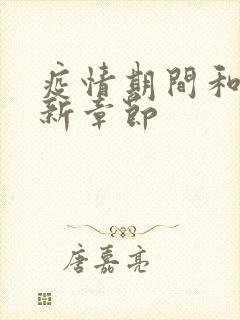 疫情期間和
新章節
唐嘉亮